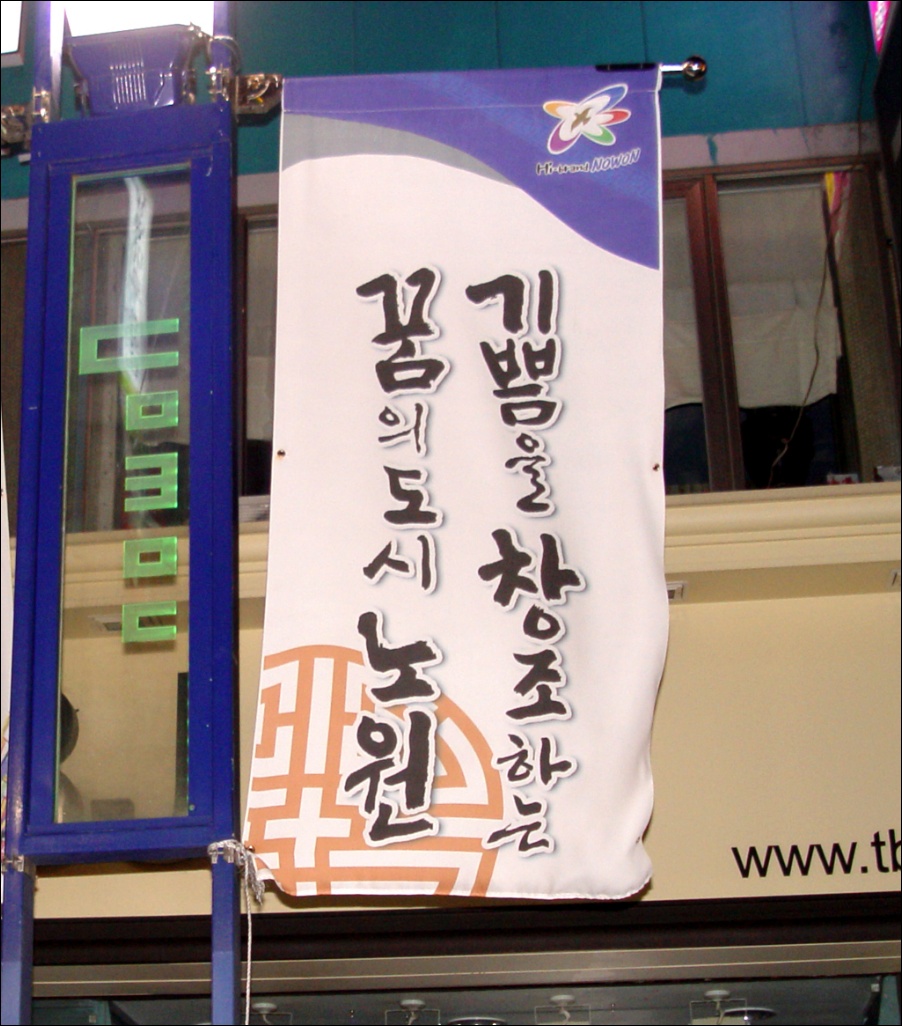 NOWON
기쁨을 창조하는
꿈의 도시 노원
www.tb